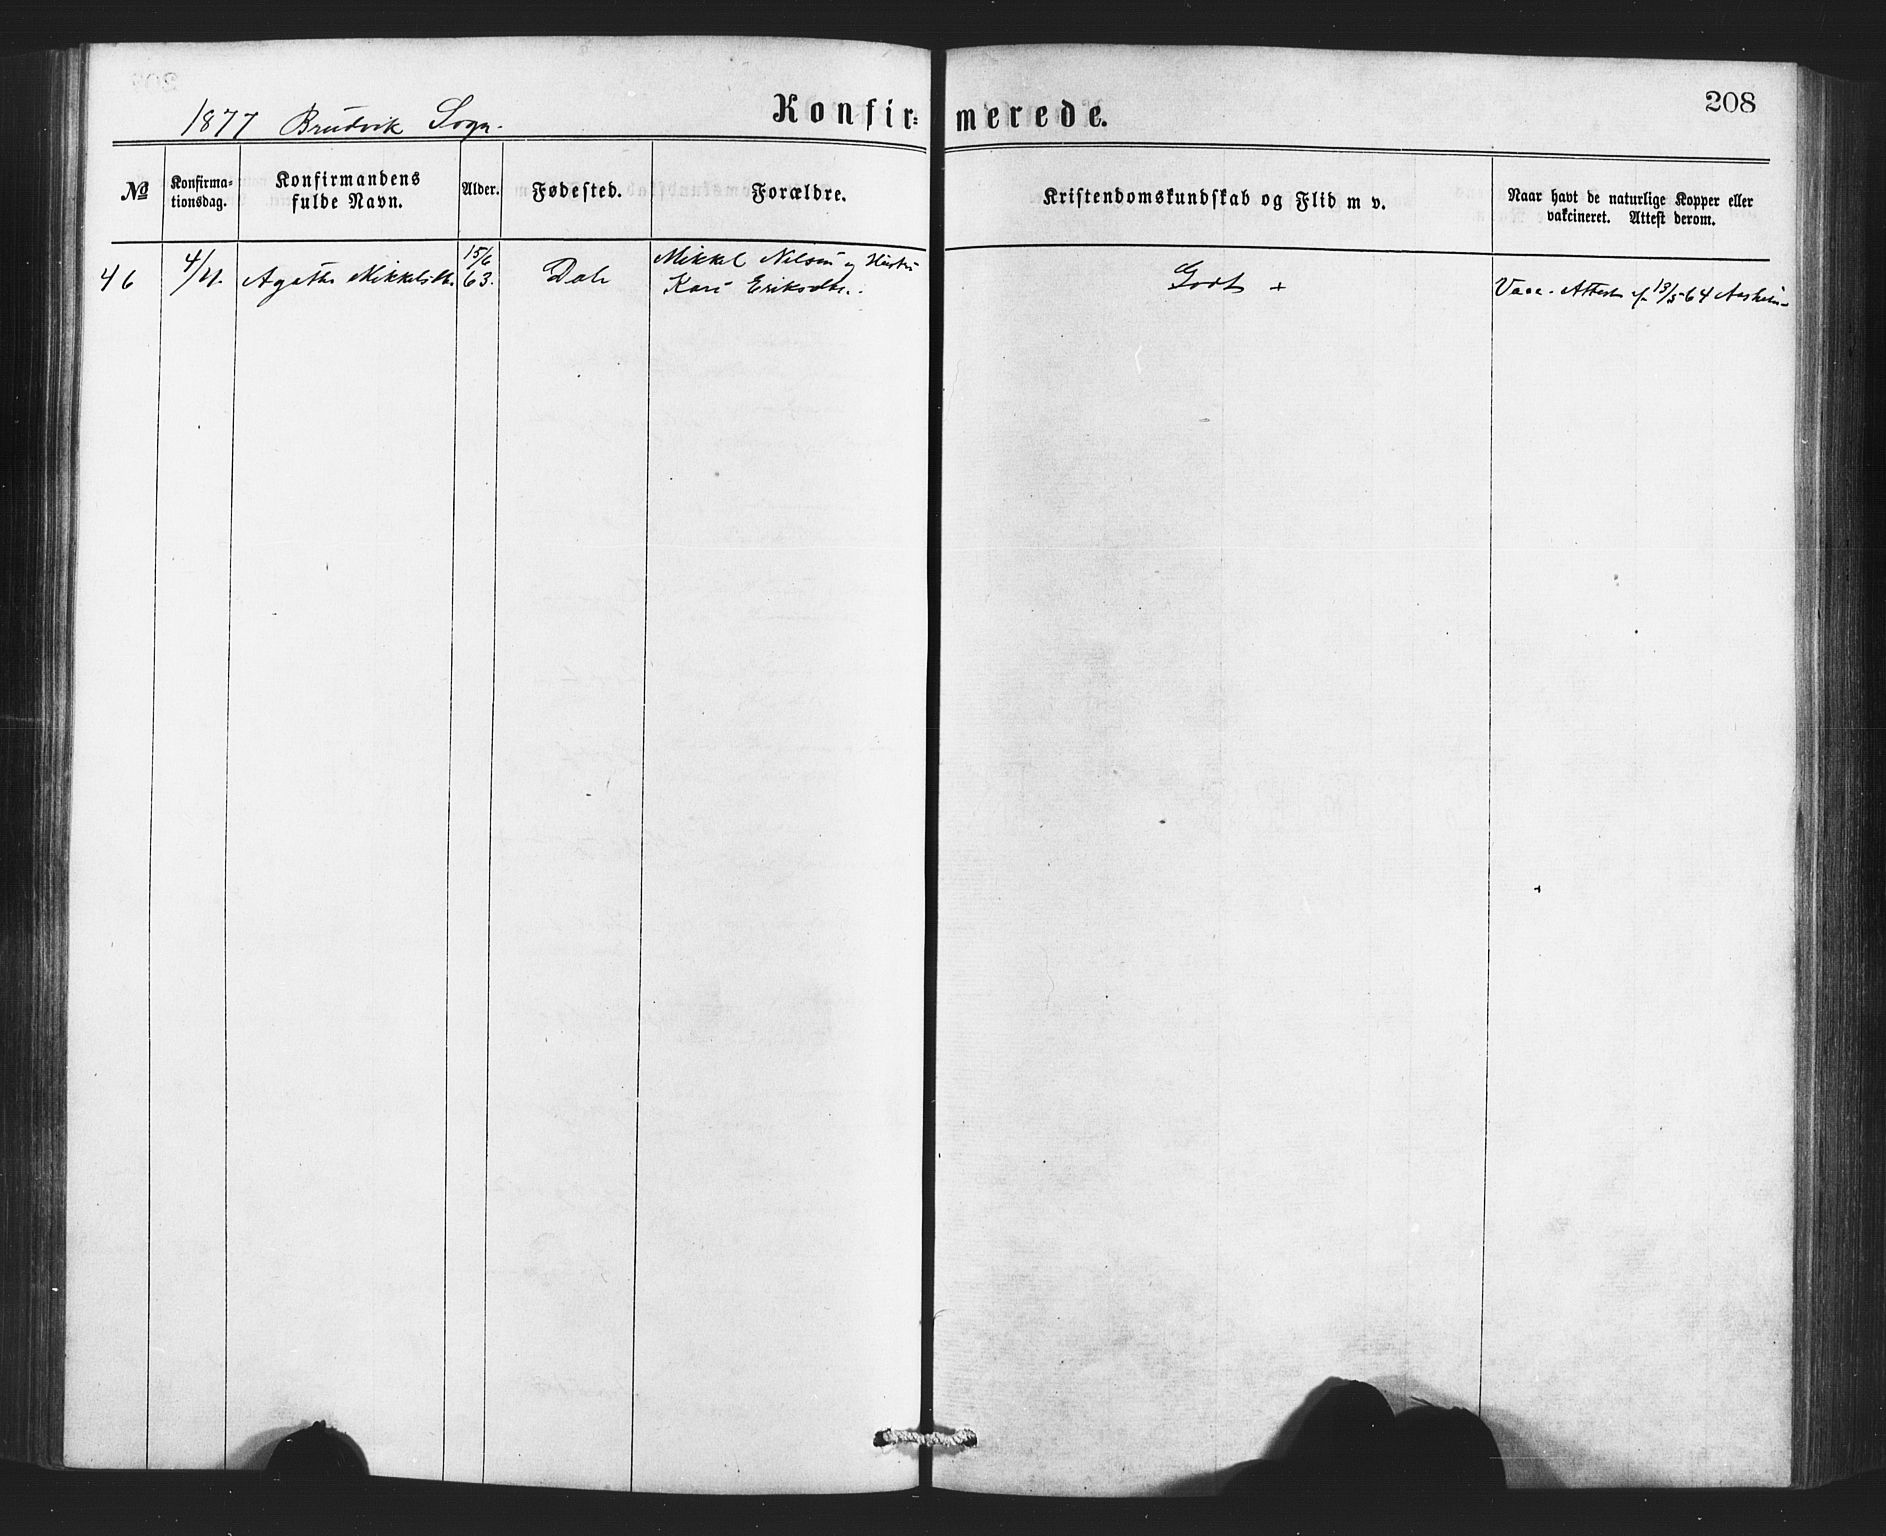 208
1877 Brudvik Sogn.
Konfir= merede.
No
Konfirma-
tionsdag.
Konfirmandens
fulde Navn.
Alder.
Fødested.
Forældre.
Kristendomskundskab og Flid m v.
Naar havt de naturlige Kopper eller
vakcineret. Attest derom.
46
4/11.
Agathe Mikkelsdtr.
15/6
63.
Dale
Mikkel Nilsen og Hustru
Kari Eriksdtr.
Godt +
Vacc. Attest af 13/5 64